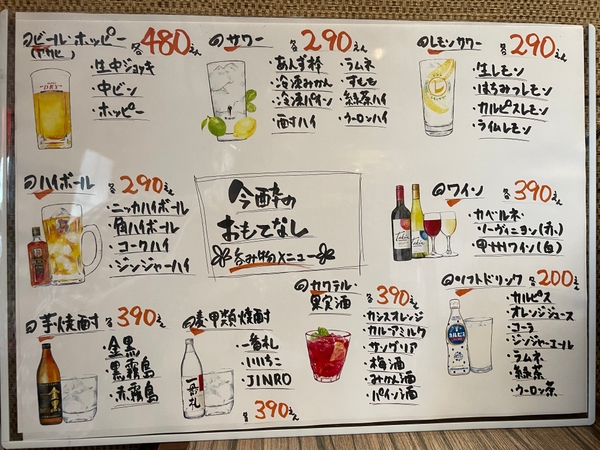 ビール・ホッピー 各480えん
(アサヒ)
・生中ジョッキ
・中ビン
・ホッピー
サワー 各290えん
・あんず棒
・冷凍みかん
・冷凍パイン
・酎ハイ
・ラムネ
・すもも
・緑茶ハイ
・ウーロンハイ
レモンサワー 各290えん
・生レモン
・はちみつレモン
・カルピスレモン
・ライムレモン
ハイボール 各290えん
・ニッカハイボール
・角ハイボール
・コークハイ
・ジンジャーハイ
今酔の
おもてなし
呑み物メニュー
ワイン 各390えん
・カベルネ・
ソーヴィニヨン(赤)
・甲州ワイン(白)
芋焼酎 各390えん
・金黒
・黒霧島
・赤霧島
麦・甲類焼酎
・一番札
・いいちこ
・JINRO
各390えん
カクテル・
果実酒 各390えん
・カシスオレンジ
・カルアミルク
・サングリア
・梅酒
・みかん酒
・パイン酒
ソフトドリンク 各200えん
・カルピス
・オレンジジュース
・コーラ
・ジンジャーエール
・ラムネ
・緑茶
・ウーロン茶